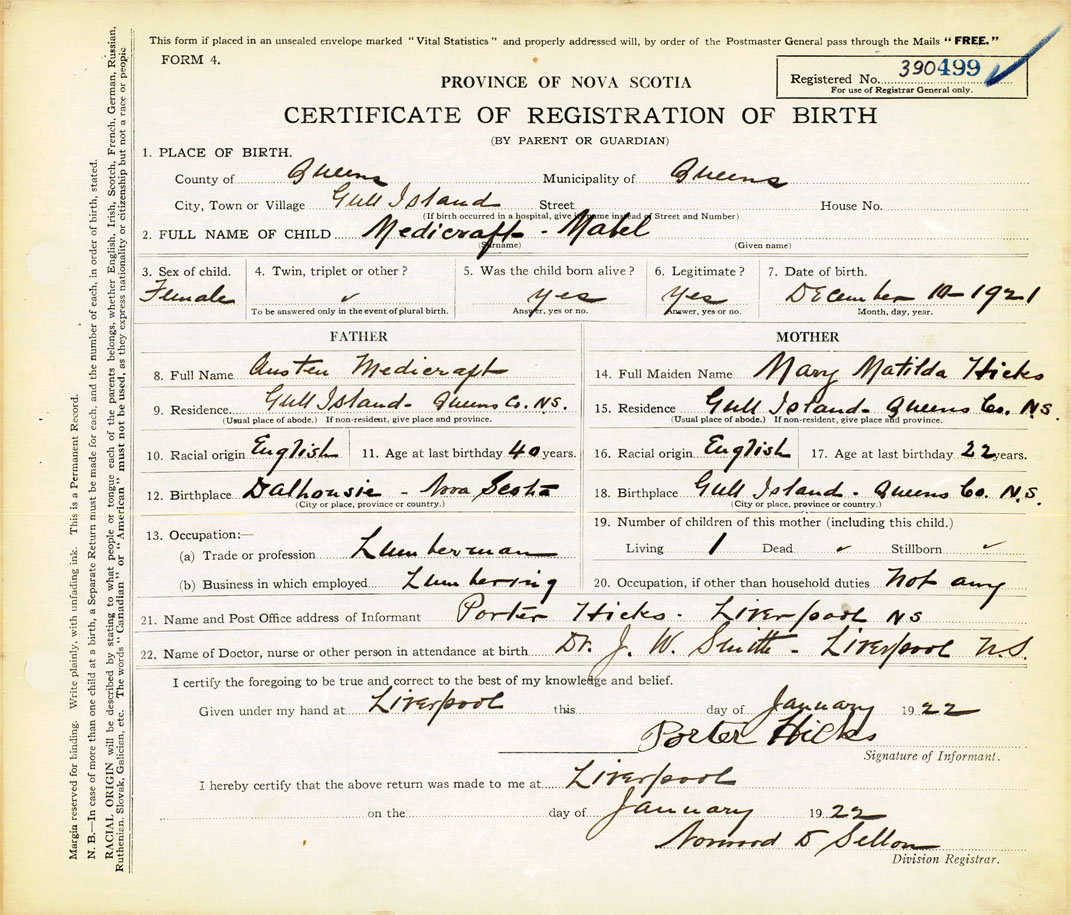 This form if placed in an unsealed envelope marked "Vital Statistics" and properly addressed will, by order of the Postmaster General pass through the Mails "FREE."
FORM 4.
Registered No. 390499
For use of Registrar General only.
PROVINCE OF NOVA SCOTIA
CERTIFICATE OF REGISTRATION OF BIRTH
(BY PARENT OR GUARDIAN)
1. PLACE OF BIRTH.
County of Queens Municipality of Queens
City, Town or Village Gull Island Street House No.
(If birth occurred in a hospital, give its name instead of Street and Number)
2. FULL NAME OF CHILD Medicraft - Mabel
(Surname) (Given name)
3. Sex of child. 4. Twin, triplet or other? 5. Was the child born alive? 6. Legitimate? 7. Date of birth.
Female ✓ yes yes December 10-1921
To be answered only in the event of plural birth. Answer, yes or no. Answer, yes or no. Month, day, year.
FATHER
8. Full Name Austen Medicraft
9. Residence. Gull Island - Queens Co. N.S.
(Usual place of abode.) If non-resident, give place and province.
10. Racial origin English 11. Age at last birthday 40 years.
12. Birthplace Dalhousie - Nova Scotia
(City or place, province or country.)
13. Occupation:—
(a) Trade or profession Lumberman
(b) Business in which employed Lumbering
MOTHER
14. Full Maiden Name Mary Matilda Hicks
15. Residence Gull Island - Queens Co. N.S.
(Usual place of abode.) If non-resident, give place and province.
16. Racial origin English 17. Age at last birthday 22 years.
18. Birthplace Gull Island - Queens Co. N.S.
(City or place, province or country.)
19. Number of children of this mother (including this child.)
Living 1 Dead ✓ Stillborn ✓
20. Occupation, if other than household duties Not any
21. Name and Post Office address of Informant Porter Hicks - Liverpool NS
22. Name of Doctor, nurse or other person in attendance at birth Dr. J. W. Smith - Liverpool N.S.
I certify the foregoing to be true and correct to the best of my knowledge and belief.
Given under my hand at Liverpool this day of January 1922
Porter Hicks
Signature of Informant.
I hereby certify that the above return was made to me at Liverpool
on the day of January 1922
D Sellon
Division Registrar.
Margin reserved for binding. Write plainly, with unfading ink. This is a Permanent Record.
N. B.—In case of more than one child at a birth, a Separate Return must be made for each, and the number of each, in order of birth, stated.
RACIAL ORIGIN will be described by stating to what people or tongue each of the parents belongs, whether English, Irish, Scotch, French, German, Russian,
Ruthenian, Slovak, Galician, etc. The words "Canadian" or "American" must not be used, as they express nationality or citizenship but not a race or people.